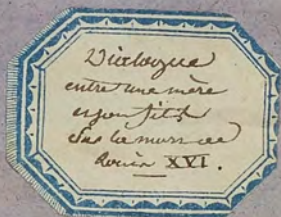 Dialogue
entre une mère
et son fils
sur la mort de
Louis XVI.